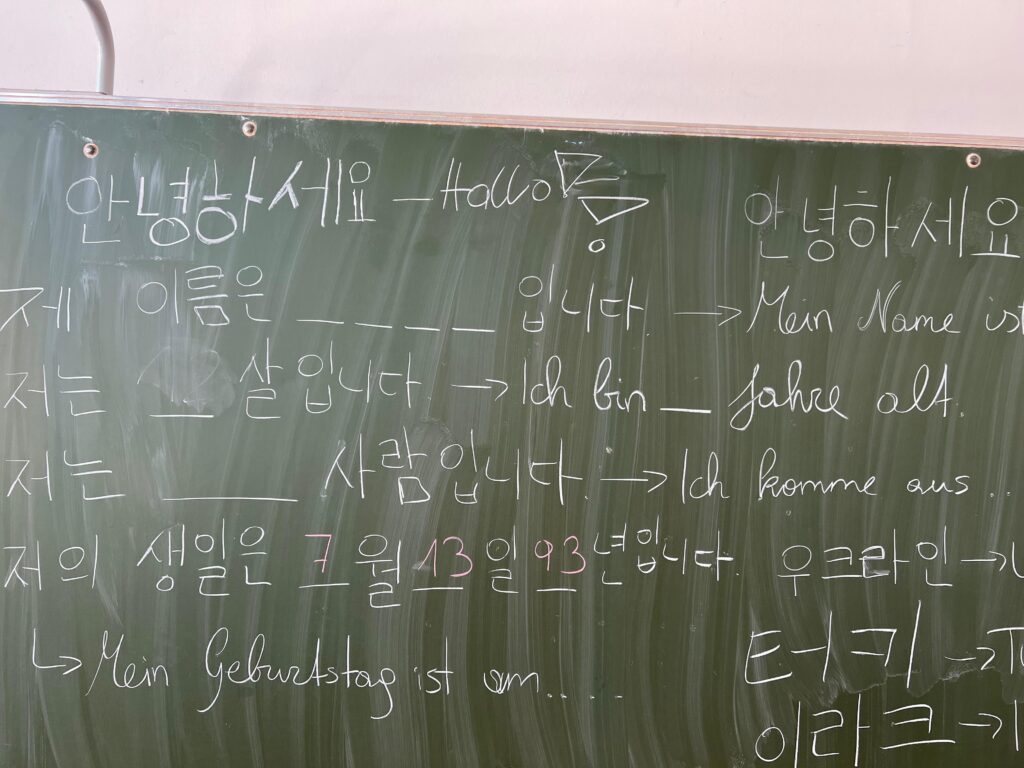 안녕하세요 – Hallo!
안녕하세요
제 이름은 _ _ _ _ 입니다. → Mein Name ist
저는 __ 살입니다 → Ich bin __ Jahre alt.
저는 ____ 사람입니다. → Ich komme aus..
저의 생일은 7 월 13 일 93 년입니다.
우크라인 →
↳ Mein Geburtstag ist am.. ..
터키 → T
이라크 →